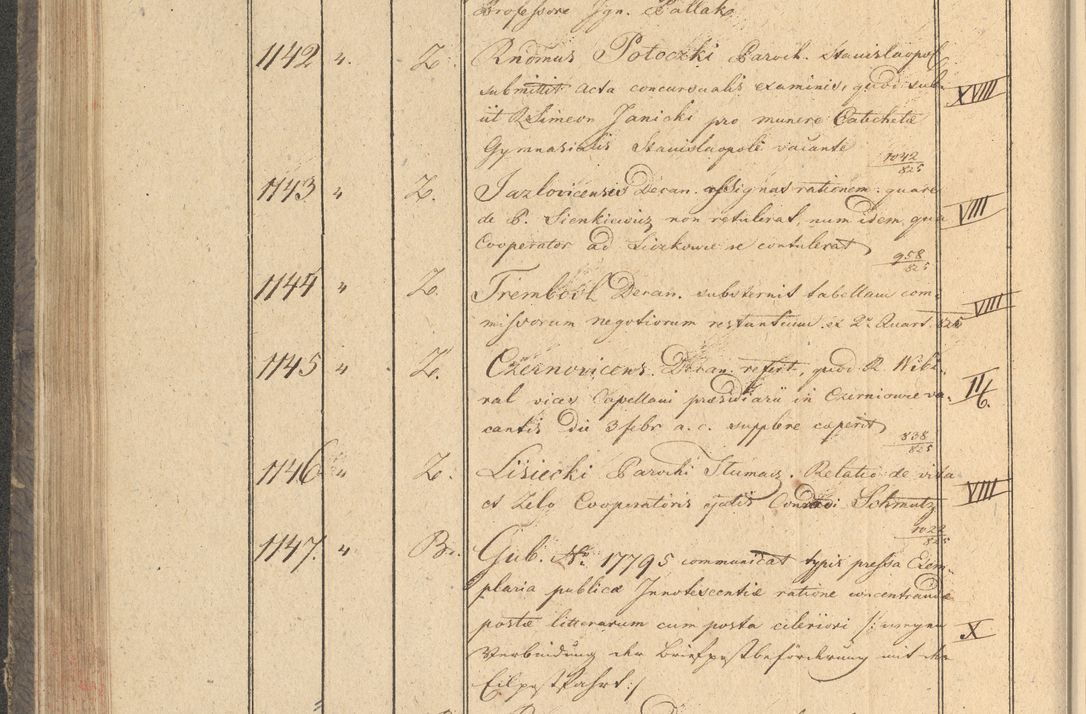 Professore Ign. Pollak
1142 " Z. Rndmus Potoczki Paroch. Stanislaopol
submittit acta concursualis examinis, quod sub-
iit R. Simeon Janicki pro munere Catechetæ XVIII
Gymnasialis Stanislaopoli vacante
1042/825
1143 " Z. Jazlovicensis Decan. assignat rationem: quare
de P. Sienkiewicz non retulerat, num idem, qua VIII
Cooperator ad Liczkowce se contulerat
958/825
1144 " Z. Trembovl. Decan. substernit tabellam com-
missorum negotiorum restantium ex 2o Quart. 825 VIII
1145 " Z. Czernovicens. Decan. refert, quod R. Wibi-
ral vices Capellani præsidiarii in Czerniowce va- II/6.
cantis die 3 febr a. c. supplere cæperit
838/825
1146 " Z. Lisiecki Parochi Tłumacz. Relatio de vita
et Zelo Cooperatoris ejatis Conradi Schmutz VIII
1022/825
1147. " Br. Gub. No. 17795 communicat typis pressa Exem-
plaria publicæ Innotescentiæ ratione concentrandæ
postæ litterarum cum posta celeriori /: wegen X
Verbindung der Briefpostbeförderung mit der
Eilpostfahrt :/